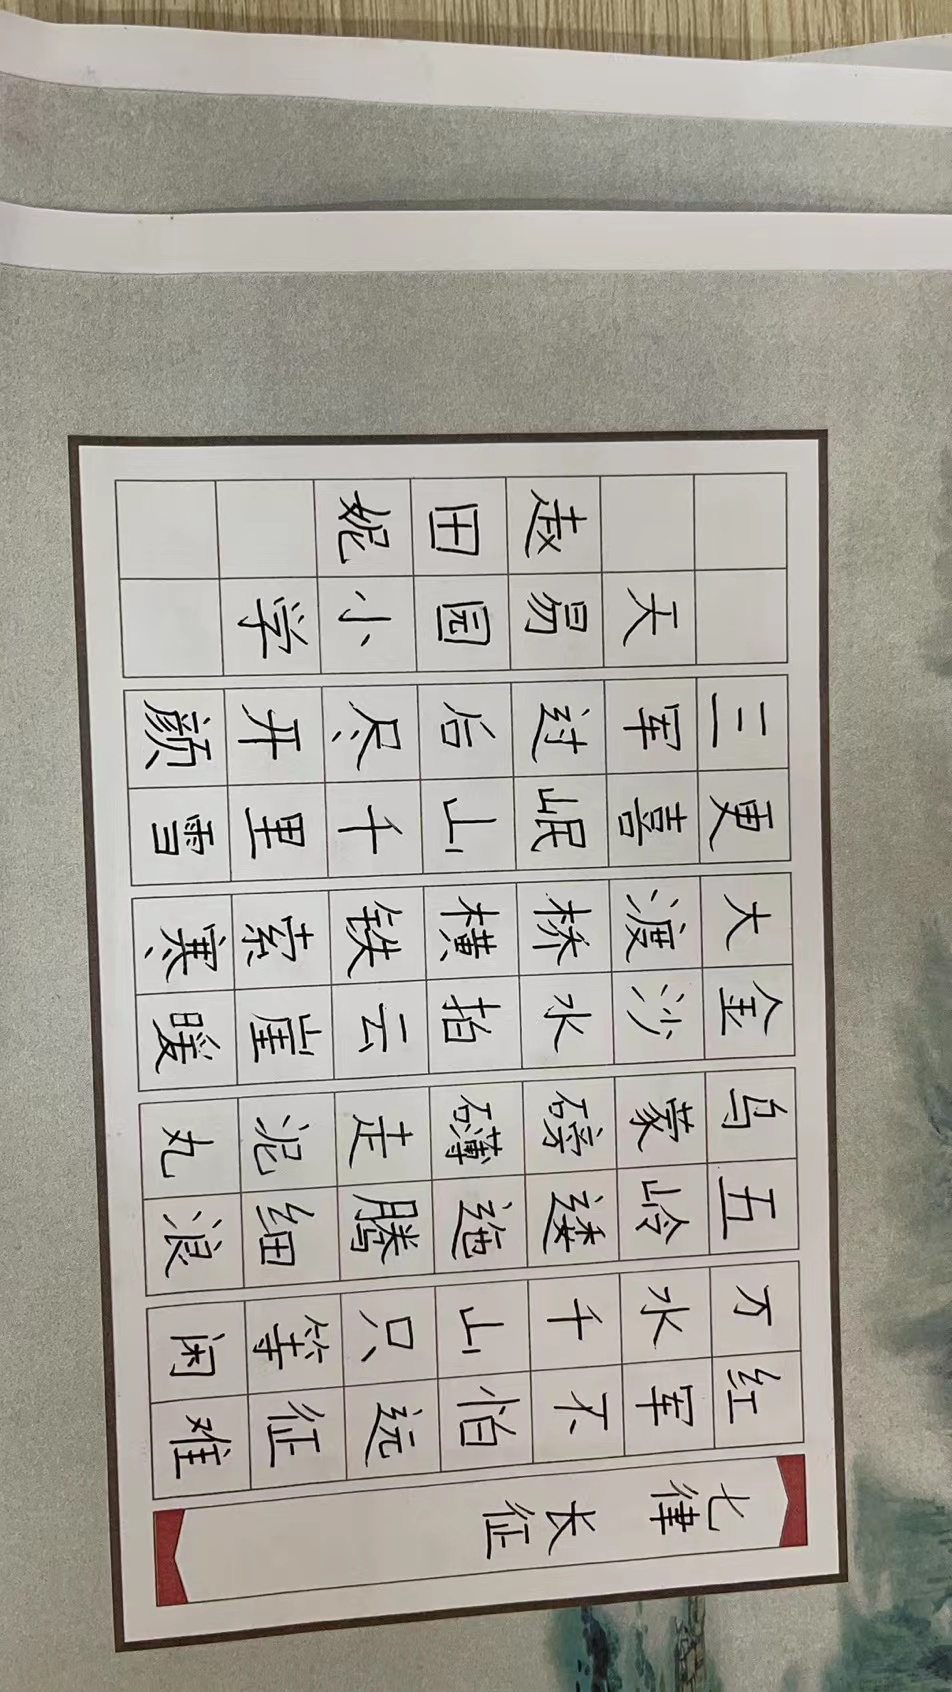 七律 长征
红军不怕远征难
万水千山只等闲
五岭逶迤腾细浪
乌蒙磅礴走泥丸
金沙水拍云崖暖
大渡桥横铁索寒
更喜岷山千里雪
三军过后尽开颜
天易园小学
田妮